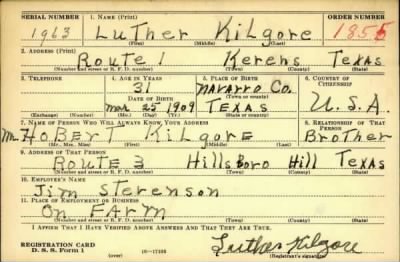 SERIAL NUMBER 1. NAME (Print) ORDER NUMBER
1963 Luther Kilgore 1855
(First) (Middle) (Last)
2. ADDRESS (Print)
Route 1 Kerens Texas
(Number and street or R. F. D. number) (Town) (County) (State)
3. TELEPHONE 4. AGE IN YEARS 5. PLACE OF BIRTH 6. COUNTRY OF CITIZENSHIP
31 Navarro Co.
DATE OF BIRTH (Town or county)
Mar 25 1909 TEXAS U.S.A.
(Exchange) (Number) (Mo.) (Day) (Yr.) (State or country)
7. NAME OF PERSON WHO WILL ALWAYS KNOW YOUR ADDRESS 8. RELATIONSHIP OF THAT PERSON
Mr. HOBERT KILGORE Brother
(Mr., Mrs., Miss) (First) (Middle) (Last)
9. ADDRESS OF THAT PERSON
Route 3 Hillsboro Hill TEXAS
(Number and street or R. F. D. number) (Town) (County) (State)
10. EMPLOYER'S NAME
Jim Stevenson
11. PLACE OF EMPLOYMENT OR BUSINESS
On FARM
(Number and street or R. F. D. number) (Town) (County) (State)
I AFFIRM THAT I HAVE VERIFIED ABOVE ANSWERS AND THAT THEY ARE TRUE.
REGISTRATION CARD
D. S. S. Form 1 (over) Luther Kilgore
(Registrant's signature)